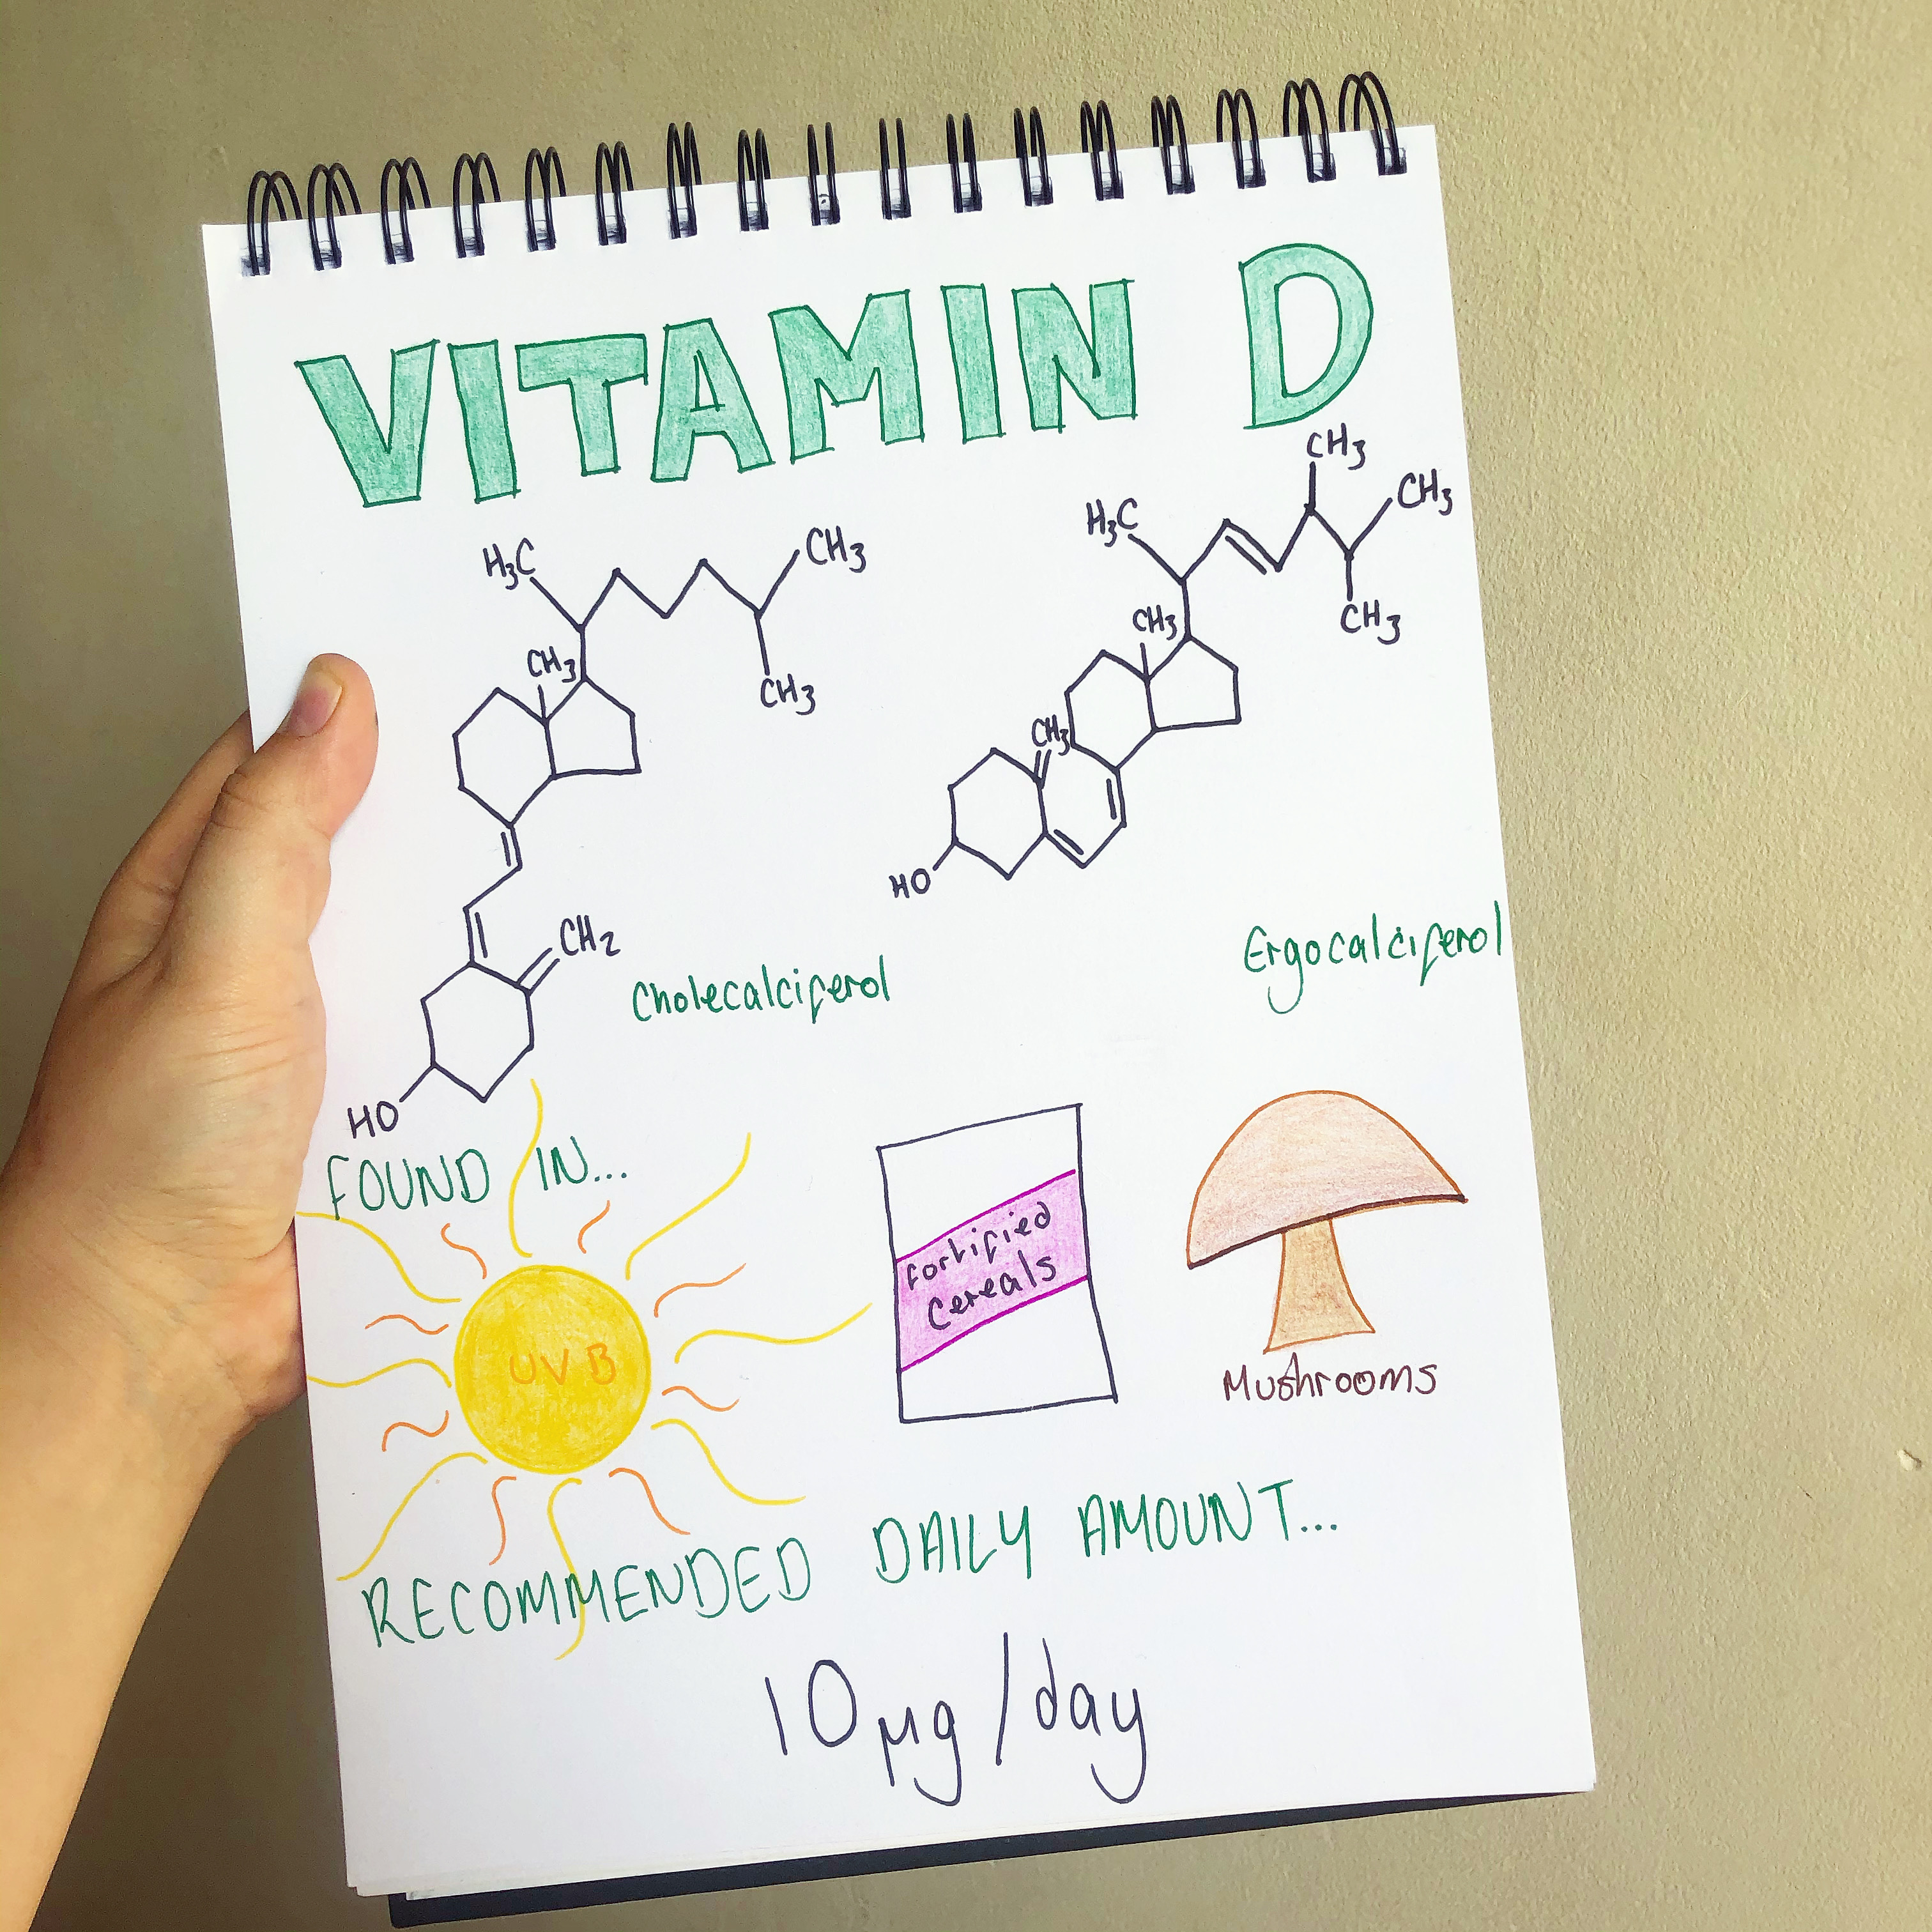 VITAMIN D
H₃C
CH₃
CH₃
CH₃
CH₂
HO
Cholecalciferol
CH₃
H₃C
CH₃
CH₃
CH₃
CH₃
HO
Ergocalciferol
FOUND IN...
UVB
fortified
cereals
Mushrooms
RECOMMENDED DAILY AMOUNT...
10µg/day